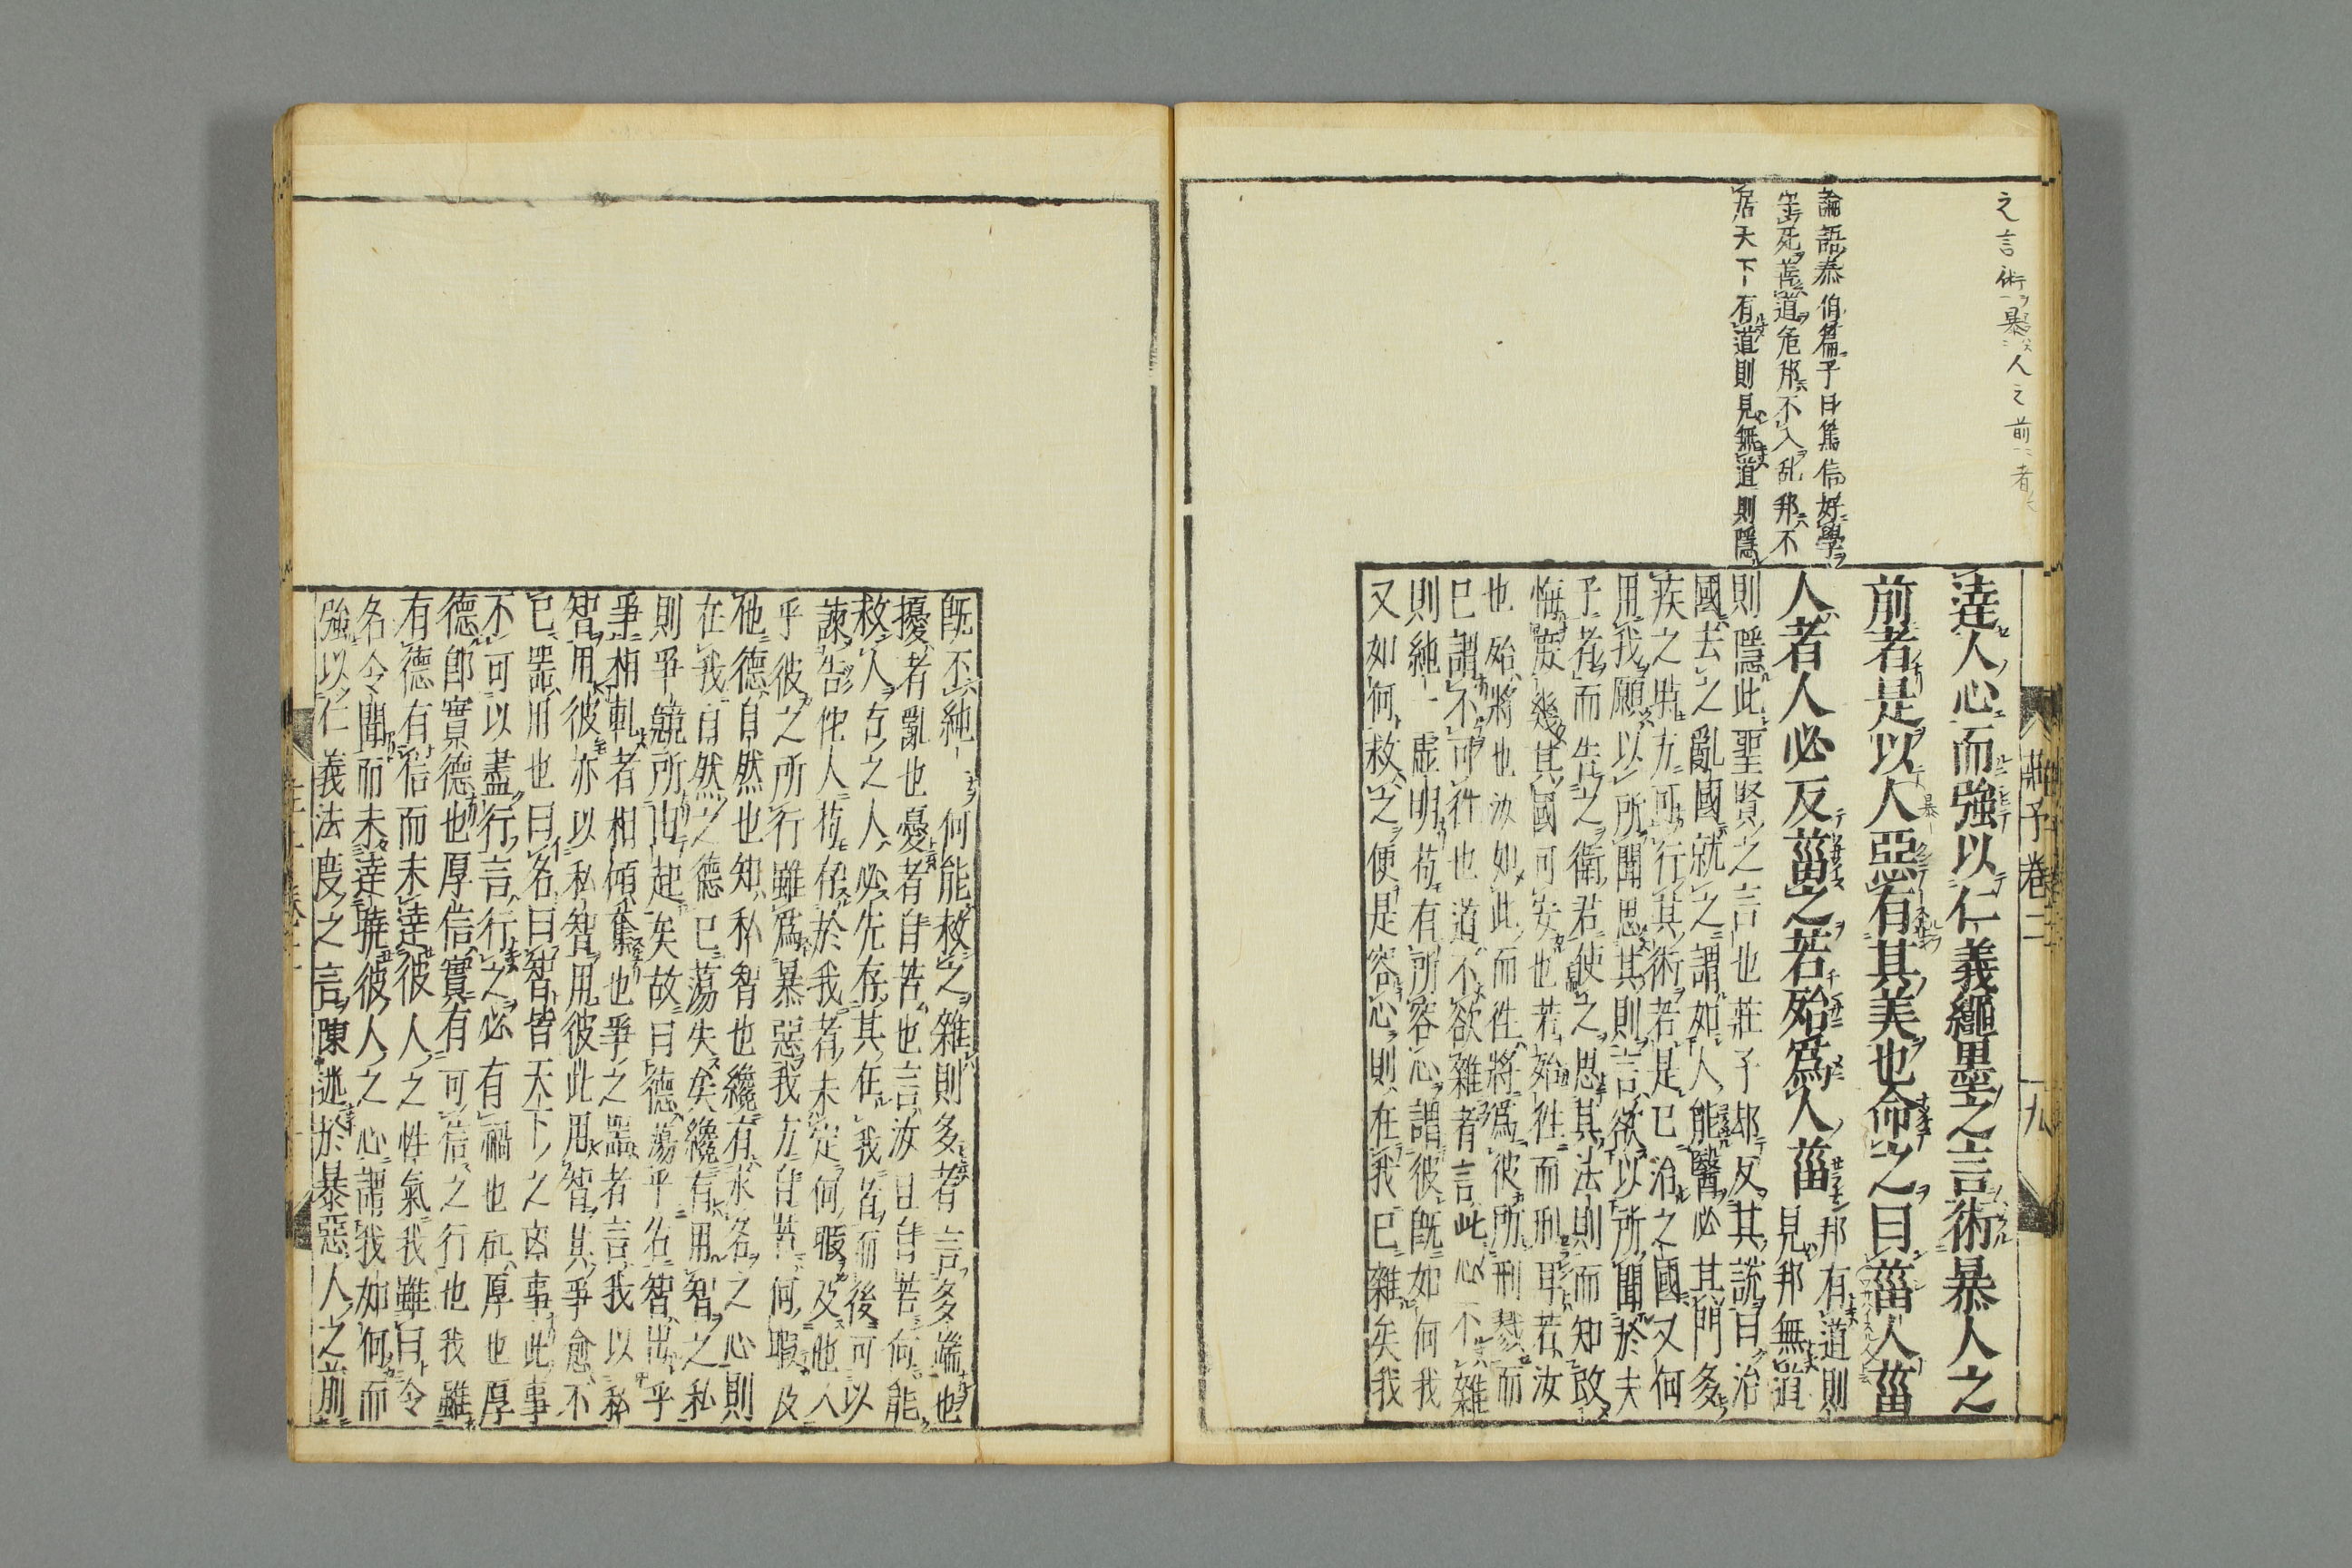 之言術暴人之前者
論語泰伯篇子曰篤信好學
守死善道危邦不入乱邦不
居天下有道則見無道則隱
莊子卷二
十九
達人心而強以仁義繩墨之言術暴人之
前者是以人惡有其美也命之曰菑人菑
人者人必反菑之若殆爲人菑
邦有道則
見邦無道
則隱此聖賢之言也莊子却反其說曰治
國去之亂國就之謂如人能醫必其門多
疾之時方可行其術若是已治之國又何
用我願以所聞思其則言欲以所聞於夫
子者而告之衛君使之思其法則而知改
悔庶幾其國可安也若殆往而刑耳若汝
也殆將也汝如此而往將爲彼所刑戮而
已謂不可往也道不欲雜者言此心不雜
則純一虛明苟有所容心謂彼既如何我
又如何救之便是容心則在我已雜矣我
既不純一何能救之雜則多者言多端也
擾者亂也憂者自苦也言汝且自苦何能
救人古之人必先存其在我者而後可以
諫告他人苟存於我者未定何暇及他人
乎彼之所行雖爲暴惡我方自苦何暇及
他德自然也知私智也纔有求名之心則
在我自然之德已蕩失矣纔有用智之私
則爭競所由起矣故曰德蕩乎名智出乎
爭相軋者相傾奪也爭之器者言我以私
智用彼亦以私智用彼此用智其爭愈不
已器用也曰名曰智皆天下之凶事此事
不可以盡行言行之必有禍也矼厚也厚
德即實德也厚信實有可信之行也我雖
有德有信而未達彼人之性氣我雖曰令
名令聞而未達曉彼人之心謂我如何而
強以仁義法度之言陳述於暴惡人之前